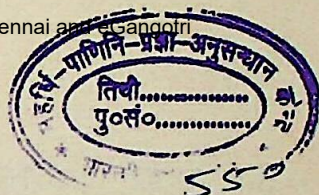 ennai and eGangotri
महर्षि-पाणिनि-प्रज्ञा-अनुसन्धान
तिथी..............
पु०सं०..............
550